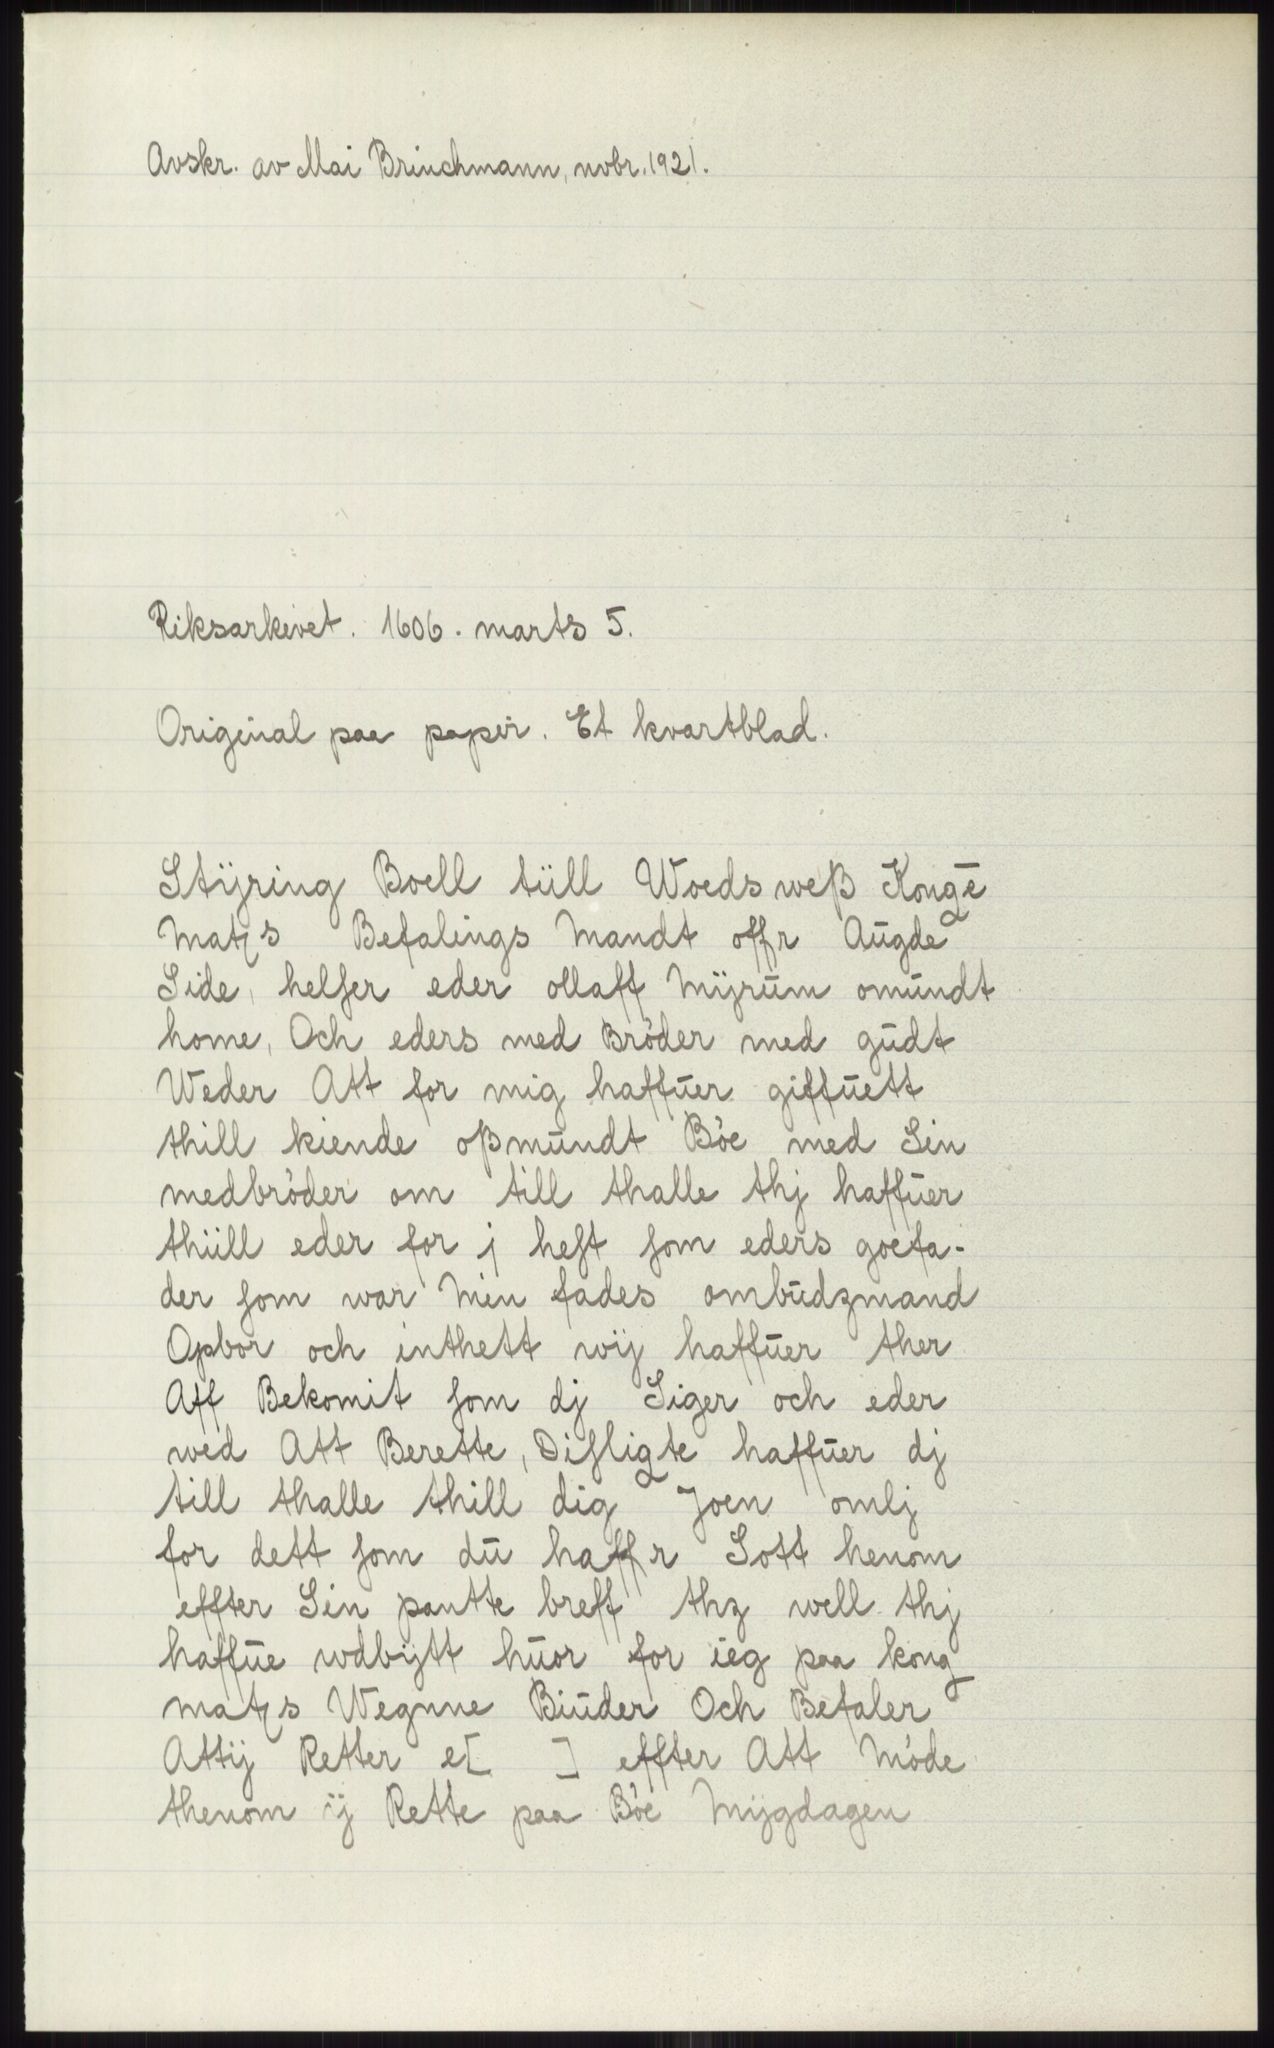 Avskr. av Mai Brinchmann, nvbr. 1921.
Riksarkivet. 1606. marts 5.
Original paa papir. Et kvartblad.
Stÿring Boell tüll Woeds weß Kongē
Matꝫs Befalings Mandt offr Aūgde
Side, helser eder ollaff Mÿrūm omūndt
home, Och eders med Brøder med gūdt
Weder Att for mig haffūer giffūett
thill kiende oßmūndt Bøe med Sin
medbrøder om till thalle thj haffūer
thüll eder for j heft som eders goefa-
der som war Min fades ombūdzmand
Opbor och inthett wÿ haffūer ther
Aff Bekomit som dj Siger och eder
wed Att Berette, Disligte haffūer dj
till thalle thill dig Joen omlj
for dett som dū haffr Sott henom
effter Sin pantte breff thz well thj
haffūe wdbÿtt hūor for ieg paa kong
matꝫs Wegnne Biūder Och Befaler
Attÿ Retter e[ ] effter Att Møde
thenom ÿ Rette paa Bøe Mÿgdagen